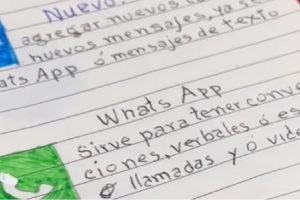 Nuevo
agregar nuevos
nuevos mensajes, ya se
ats App ó mensajes de texto
Whats App
sirve para tener conve
ciones, verbales ó es
llamadas y ó vide